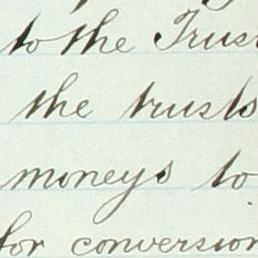 to the Trust
the trusts
moneys to
for conversion